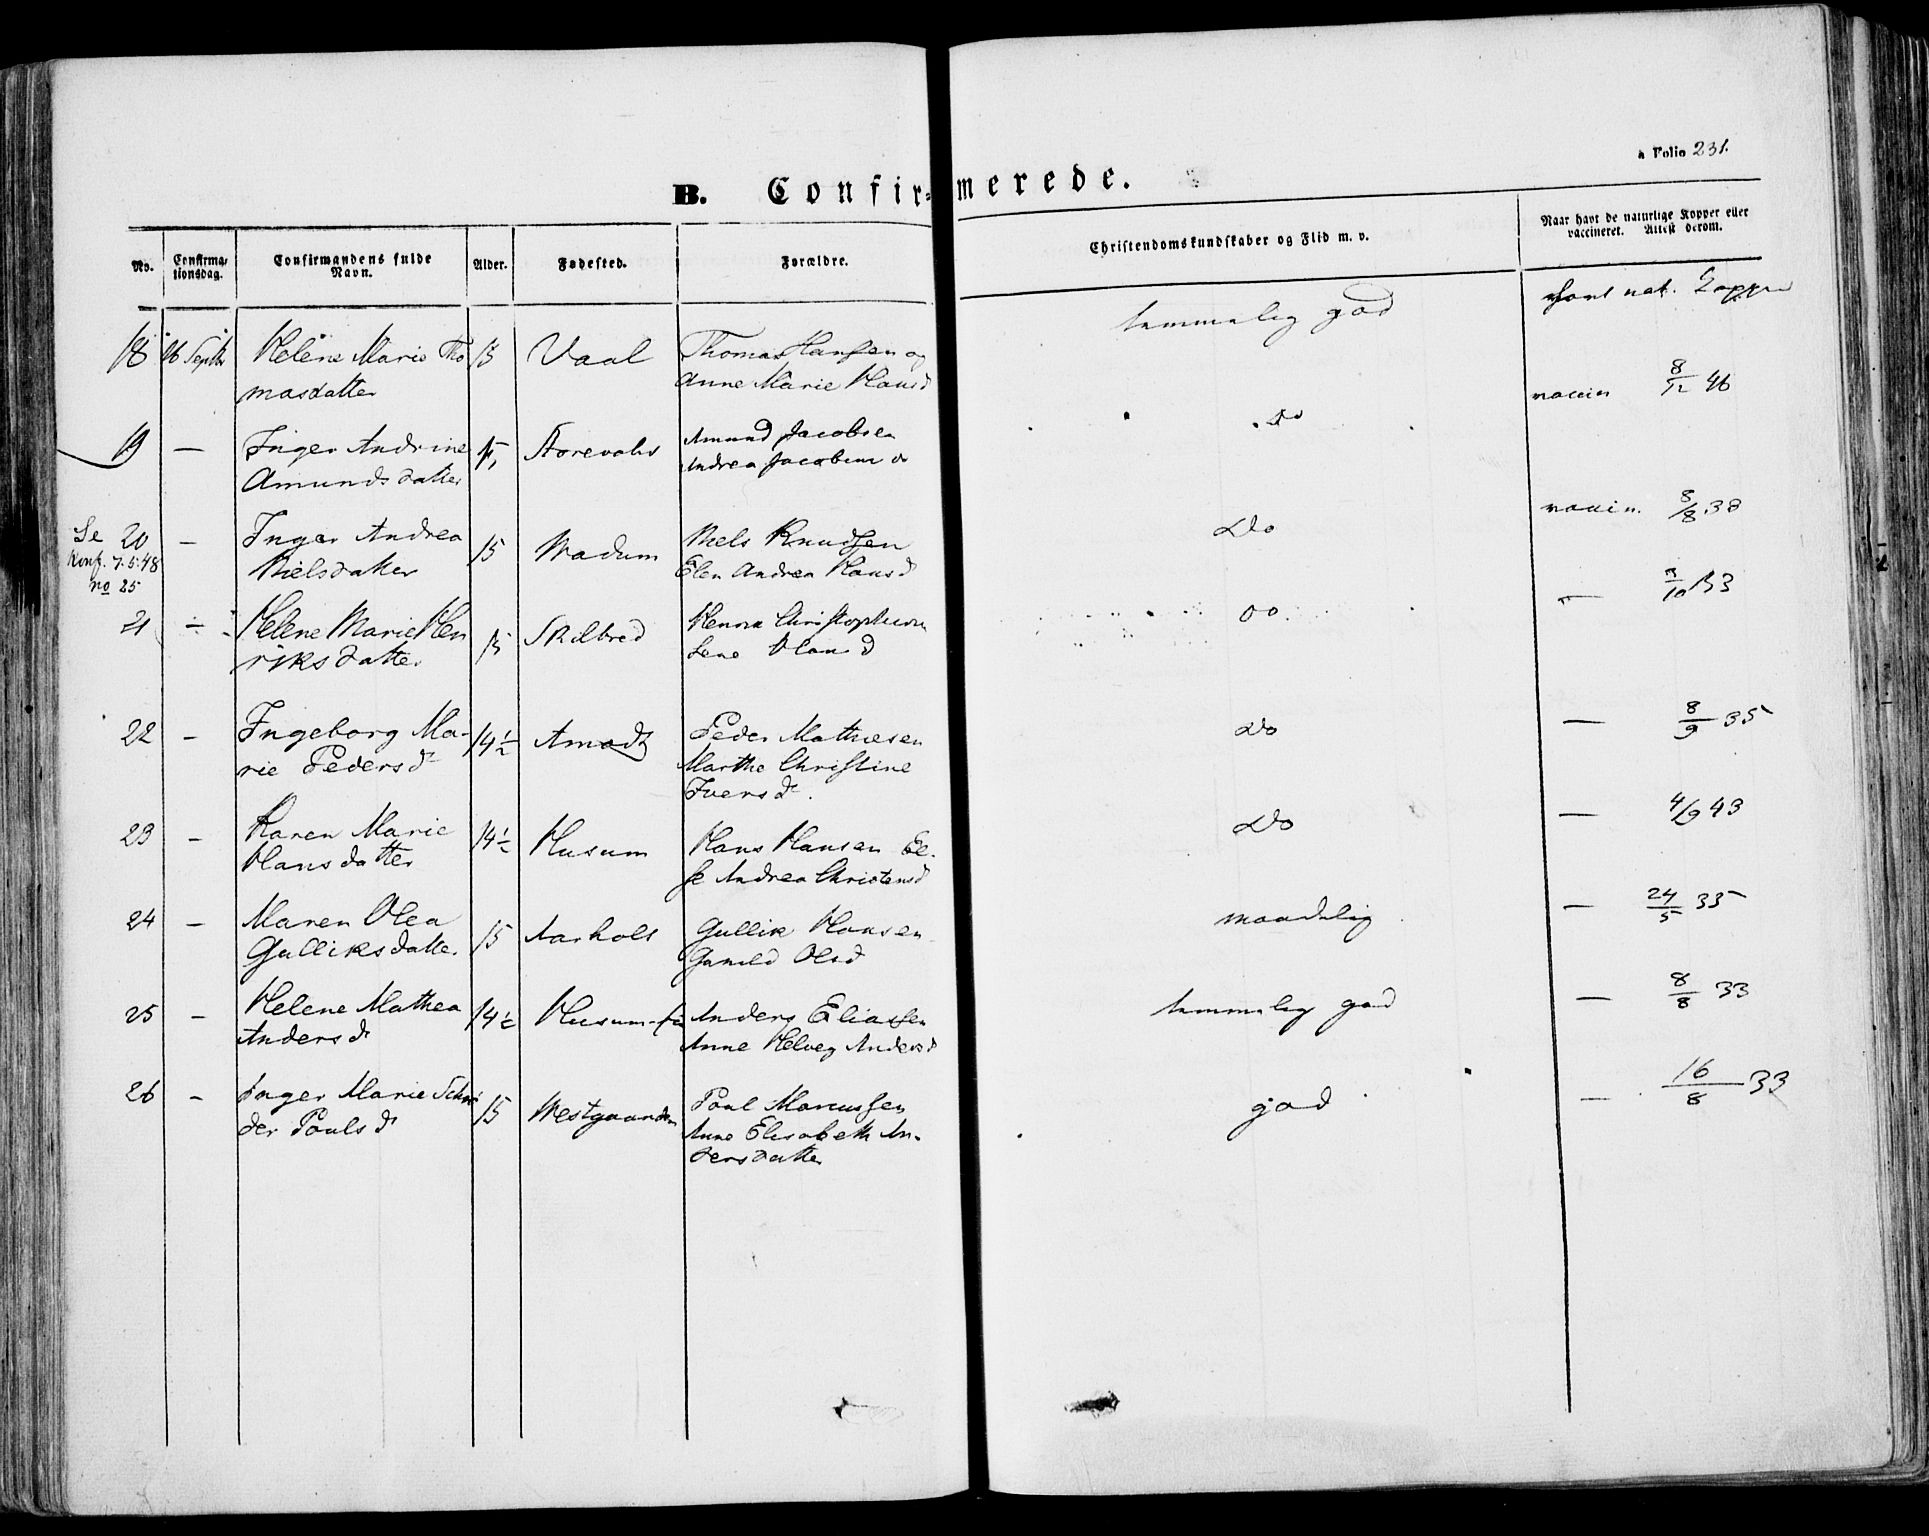 a Folio 231.
B. Confir-merede.
No.
Confirma-
tionsdag.
Confirmandens fulde
Navn.
Alder.
Fødested.
Forældre.
Christendomskundskaber og Flid m. v.
Naar havt de naturlige Kopper eller
vaccineret. Attest derom.
18 16 Septbr Helene Marie Tho 15 Vaal Thomas Hansen og temmelig god havt nat. Kopper
masdatter Anne Marie Hansd
19 — Inger Andrine 15 Storevahr Amund Jacobsen Do vaccin 8/12 46
Amundsdatter Andrea Jacobine
Se 20 — Inger Andrea 15 Wadum Niels Knudsen Do vaccin. 8/8 38
Konf. 7.5.48 Nielsdatter Elen Andrea Hansd
no 25
21 — Helene Marie Hen 15 Skilbred Christophersen Do — 3/10 33
riksdatter Lene Hansd
22 — Ingeborg Ma- 14½ Amodt Peder Mathiesen Do — 8/9 35
rie Pedersd Marthe Christine
Iversd.
23 — Karen Marie 14½ Husum Hans Hansen El- Do — 4/9 43
Hansdatter se Andrea Christensd
24 — Maren Olea 15 Aarholt Gullik Hansen maadelig — 24/5 35
Gulliksdatter Gunild Olsd
25 — Helene Mathea 14½ Husum Anders Eliassen temmelig god — 8/8 33
Andersd Anne Helveg Andersd
26 — Inger Marie Schrø 15 Westgaarden Poul Marcussen god — 16/8 33
der Poulsd Anne Elisabeth An-
dersdatter